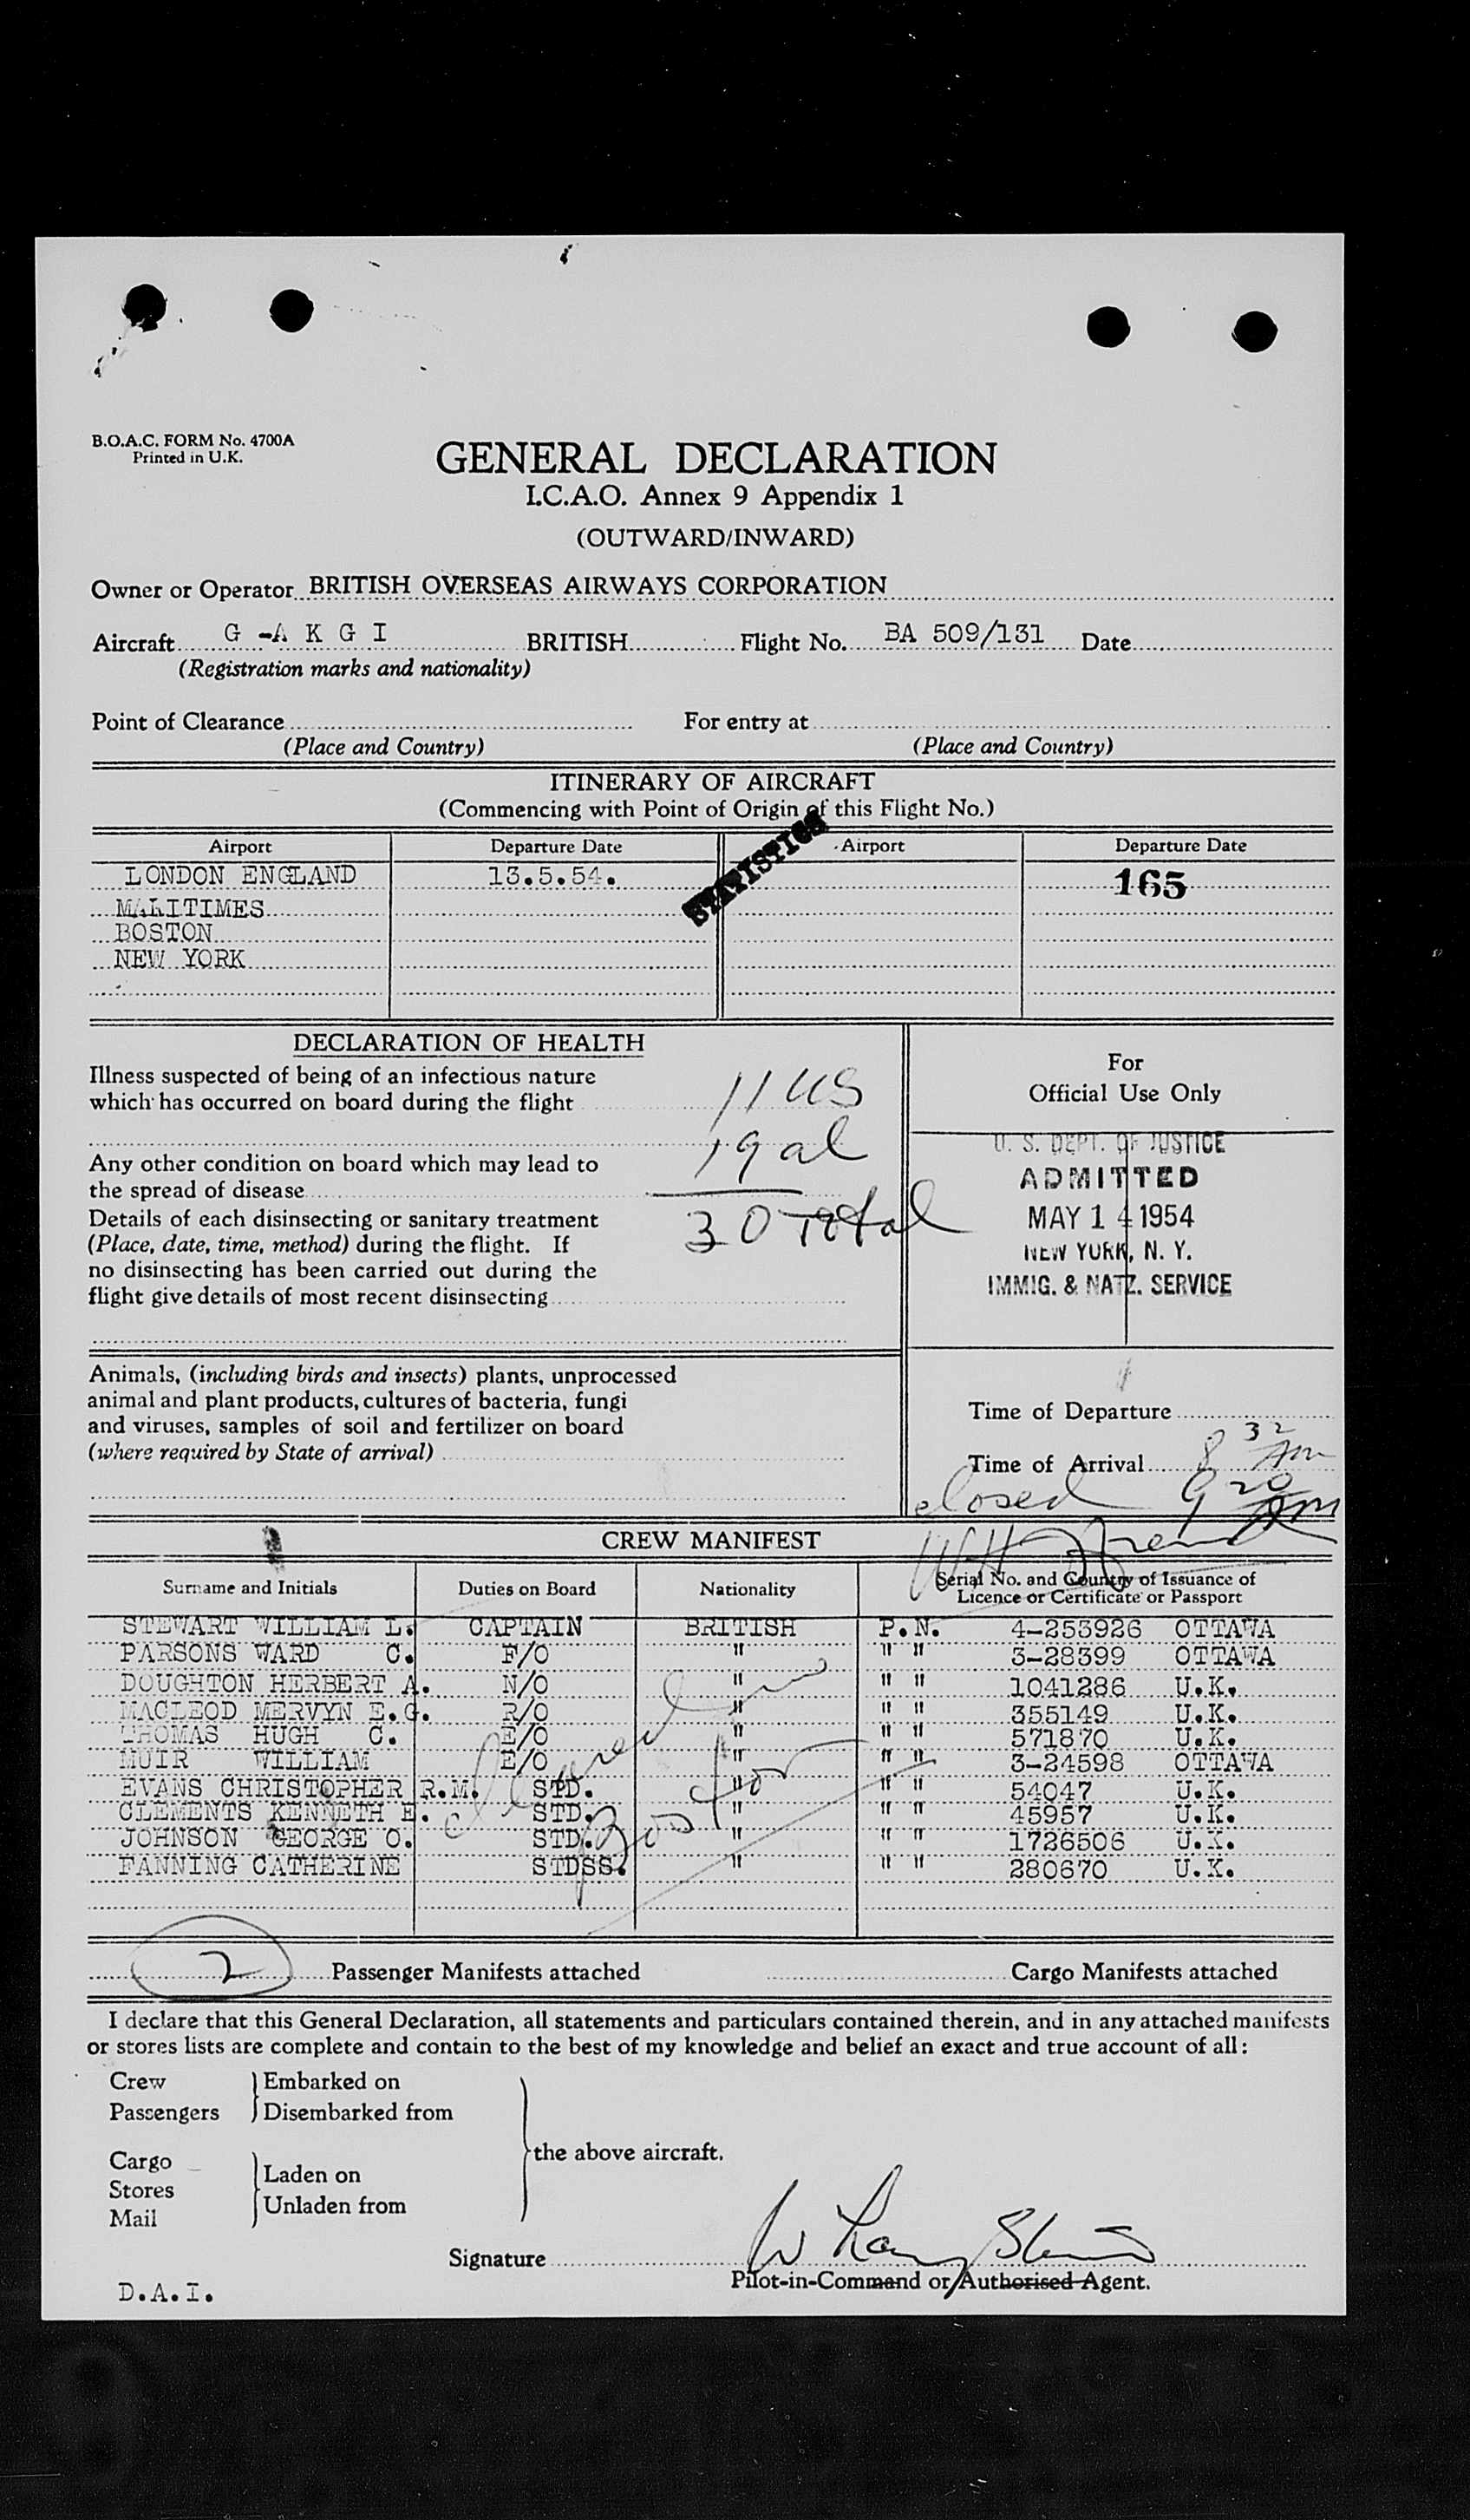 B.O.A.C. FORM No. 4700A
Printed in U.K.
GENERAL DECLARATION
I.C.A.O. Annex 9 Appendix 1
(OUTWARD/INWARD)
Owner or Operator BRITISH OVERSEAS AIRWAYS CORPORATION
Aircraft G -A K G I BRITISH Flight No. BA 509/131 Date
(Registration marks and nationality)
Point of Clearance For entry at
(Place and Country) (Place and Country)
ITINERARY OF AIRCRAFT
(Commencing with Point of Origin of this Flight No.)
STATISTICS
Airport Departure Date Airport Departure Date
LONDON ENGLAND 13.5.54. 165
MARITIMES
BOSTON
NEW YORK
DECLARATION OF HEALTH
Illness suspected of being of an infectious nature
which has occurred on board during the flight 11 US
19 al
Any other condition on board which may lead to
the spread of disease
30 Total
Details of each disinsecting or sanitary treatment
(Place, date, time, method) during the flight. If
no disinsecting has been carried out during the
flight give details of most recent disinsecting
For
Official Use Only
U. S. DEPT. OF JUSTICE
ADMITTED
MAY 14 1954
NEW YORK, N. Y.
IMMIG. & NATZ. SERVICE
Animals, (including birds and insects) plants, unprocessed
animal and plant products, cultures of bacteria, fungi
and viruses, samples of soil and fertilizer on board
(where required by State of arrival)
Time of Departure
Time of Arrival 8 32 Am
closed 9 20 Am
CREW MANIFEST
Surname and Initials Duties on Board Nationality Serial No. and Country of Issuance of
Licence or Certificate or Passport
STEWART WILLIAM L. CAPTAIN BRITISH P.N. 4-253926 OTTAWA
PARSONS WARD C. F/O " " " 3-28399 OTTAWA
DOUGHTON HERBERT A. N/O " " " 1041286 U.K.
MACLEOD MERVYN E.G. R/O " " " 355149 U.K.
THOMAS HUGH C. E/O " " " 571870 U.K.
MUIR WILLIAM E/O " " " 3-24598 OTTAWA
EVANS CHRISTOPHER R.M. STD. " " " 54047 U.K.
CLEMENTS KENNETH E. STD. " " " 45957 U.K.
JOHNSON GEORGE O. STD. " " " 1726506 U.K.
FANNING CATHERINE STDSS. " " " 280670 U.K.
Cleared
Boston
2 Passenger Manifests attached Cargo Manifests attached
I declare that this General Declaration, all statements and particulars contained therein, and in any attached manifests
or stores lists are complete and contain to the best of my knowledge and belief an exact and true account of all:
Crew Embarked on
Passengers Disembarked from
the above aircraft.
Cargo
Stores Laden on
Mail Unladen from
Signature
Pilot-in-Command or Authorised Agent.
D.A.I.